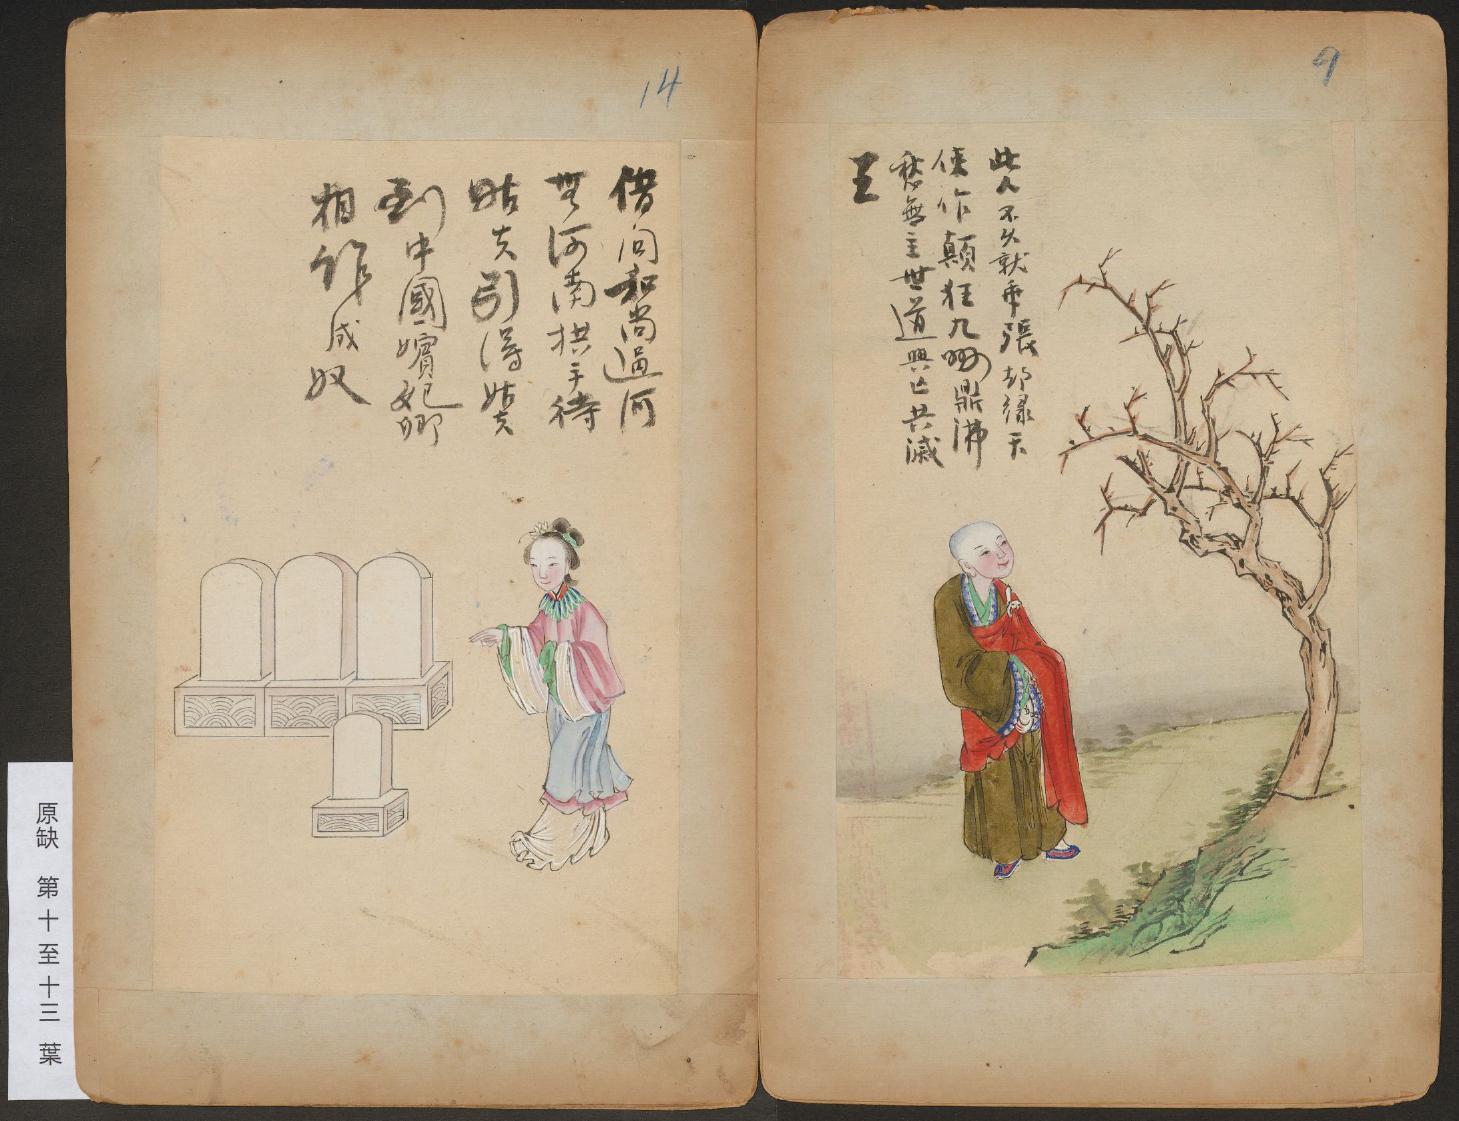 9
此人不久就乖張却緣天
使作顛狂九州鼎沸
愁無主世道興亡共滅
王
14
借問和尚過河
無河南拱手待
姑夫引得姑夫
到中國嬪妃卿
相作成奴
原缺 第十至十三葉